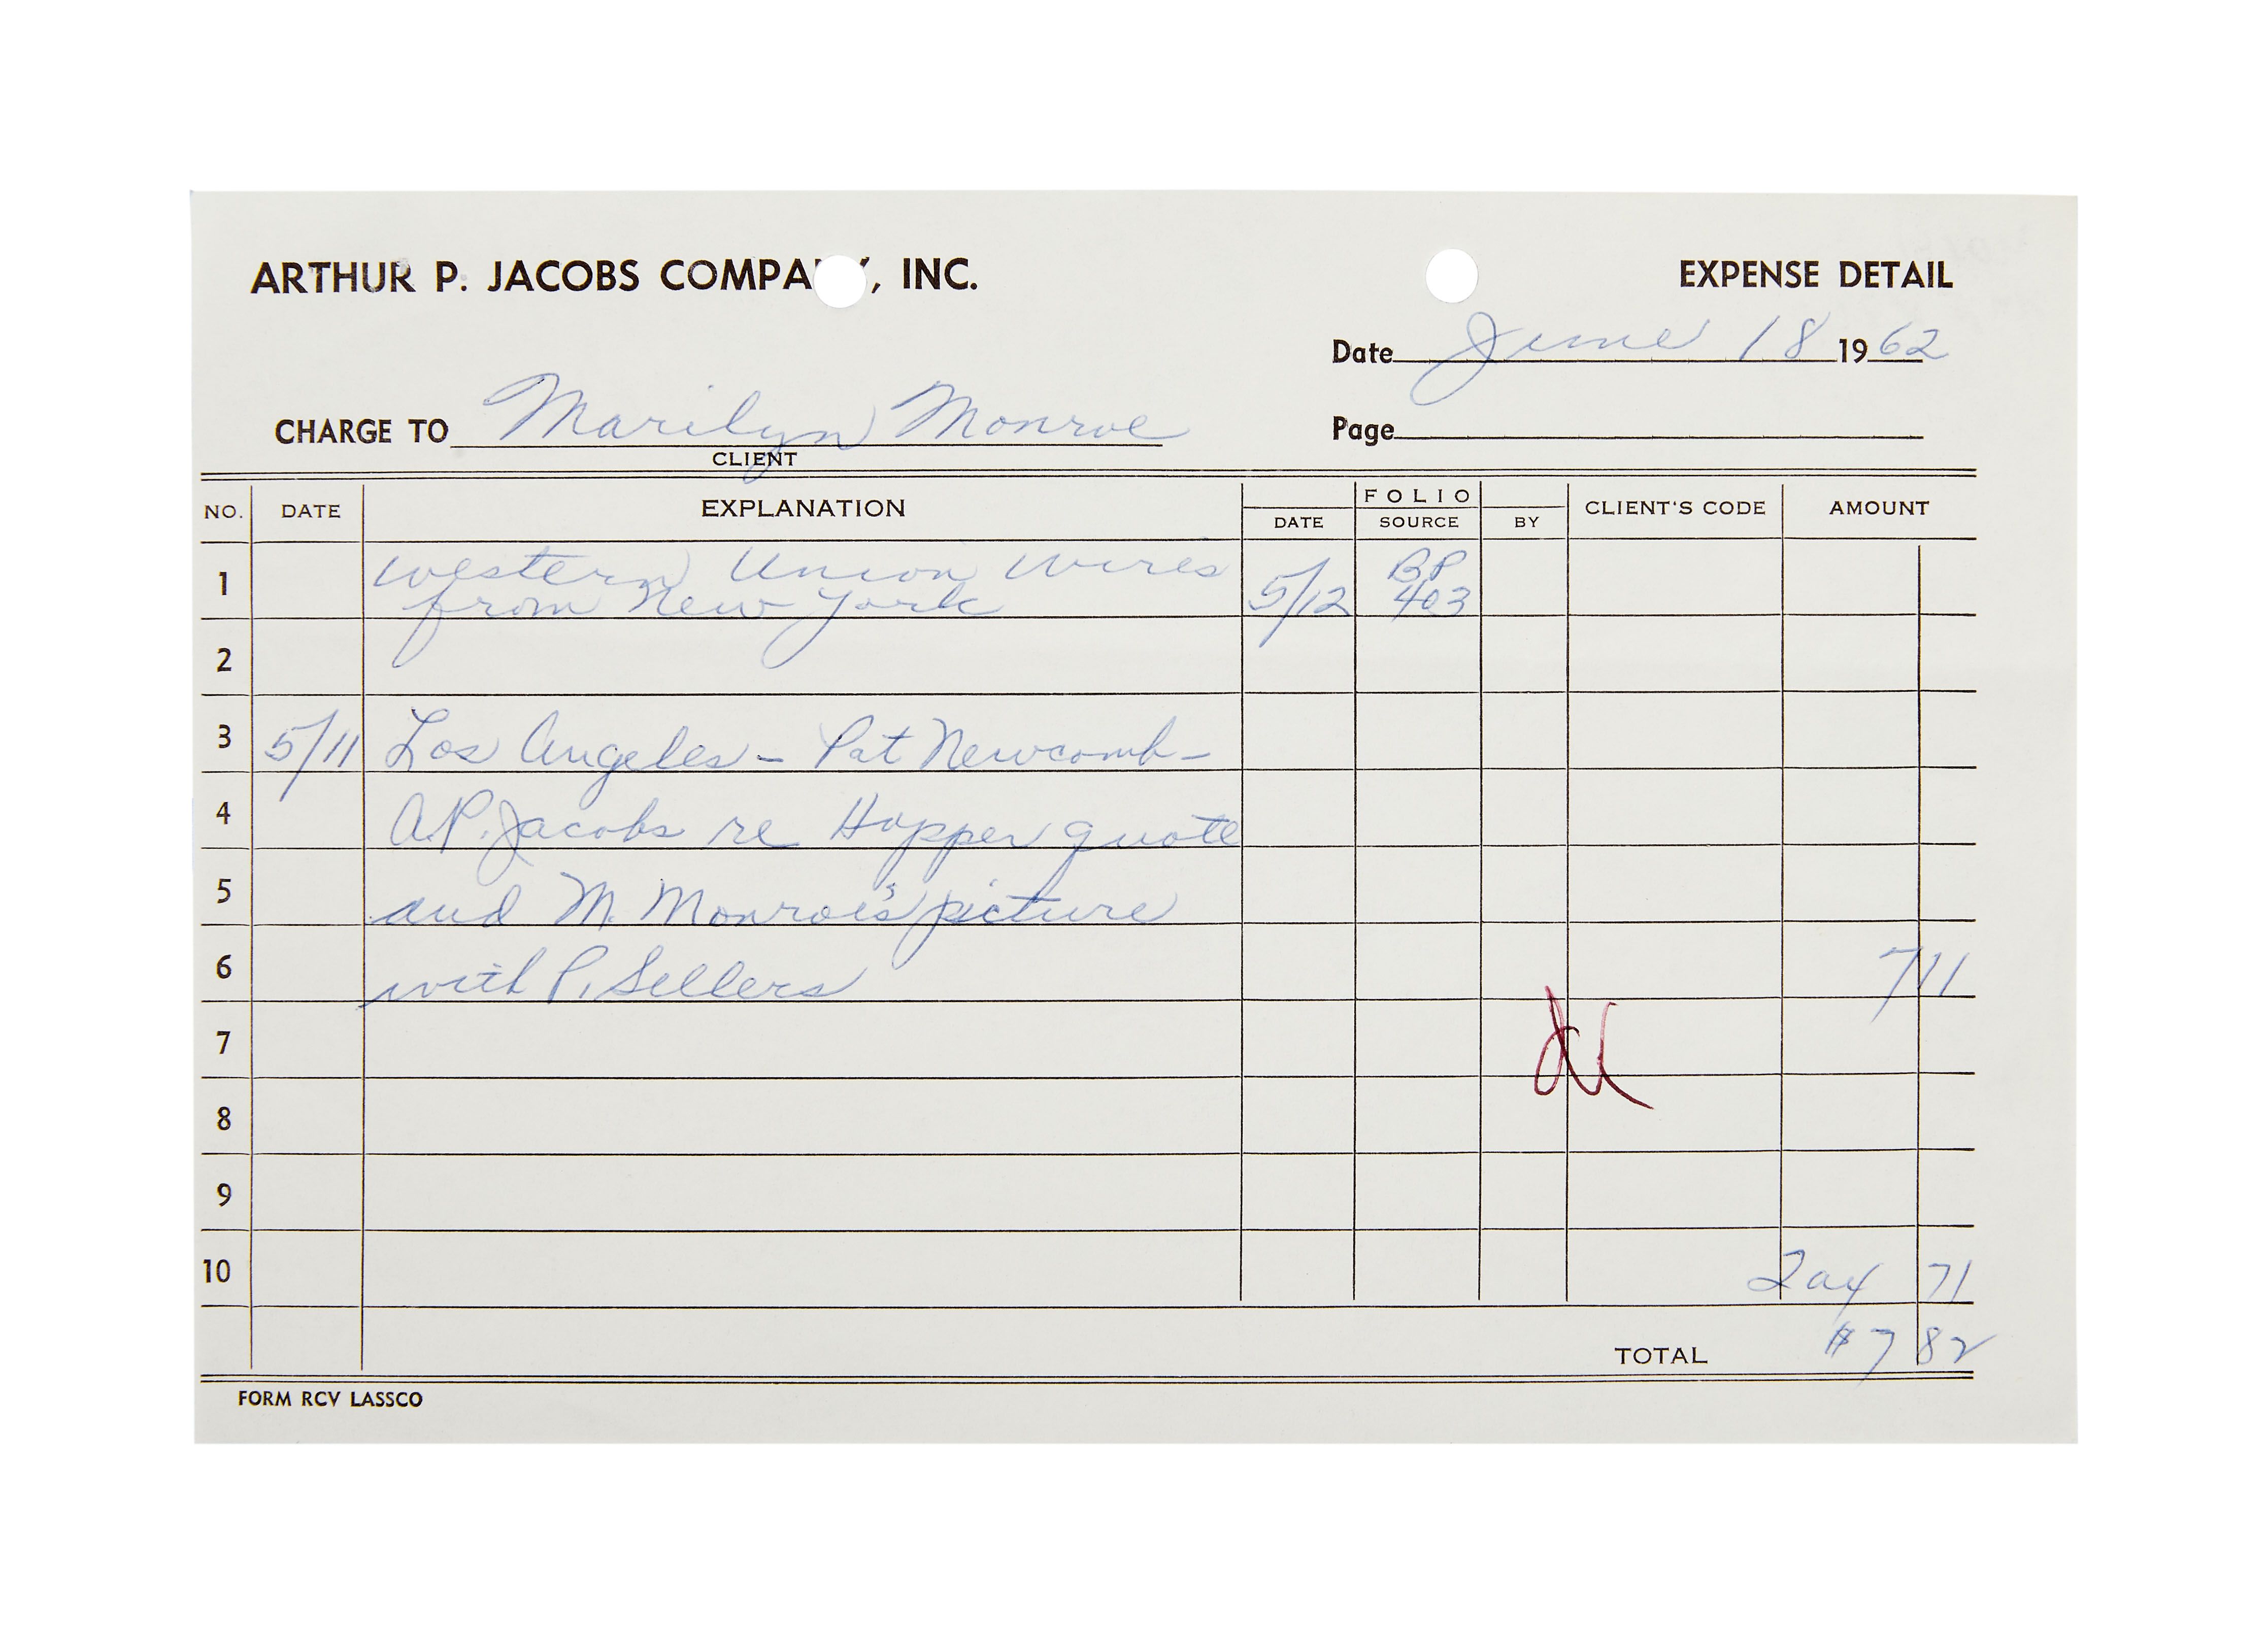 ARTHUR P. JACOBS COMPANY, INC.
EXPENSE DETAIL
Date June 18 1962
CHARGE TO Marilyn Monroe
Page
CLIENT
NO. DATE EXPLANATION DATE FOLIO SOURCE BY CLIENT'S CODE AMOUNT
1 Western Union wires 5/12 BP
from New York 403
2
3 5/11 Los Angeles - Pat Newcomb -
4 A.P. Jacobs re Hopper quote
5 and M. Monroe's picture
6 with P. Sellers 7 11
7
8
9
10 71
TOTAL $7 82
FORM RCV LASSCO